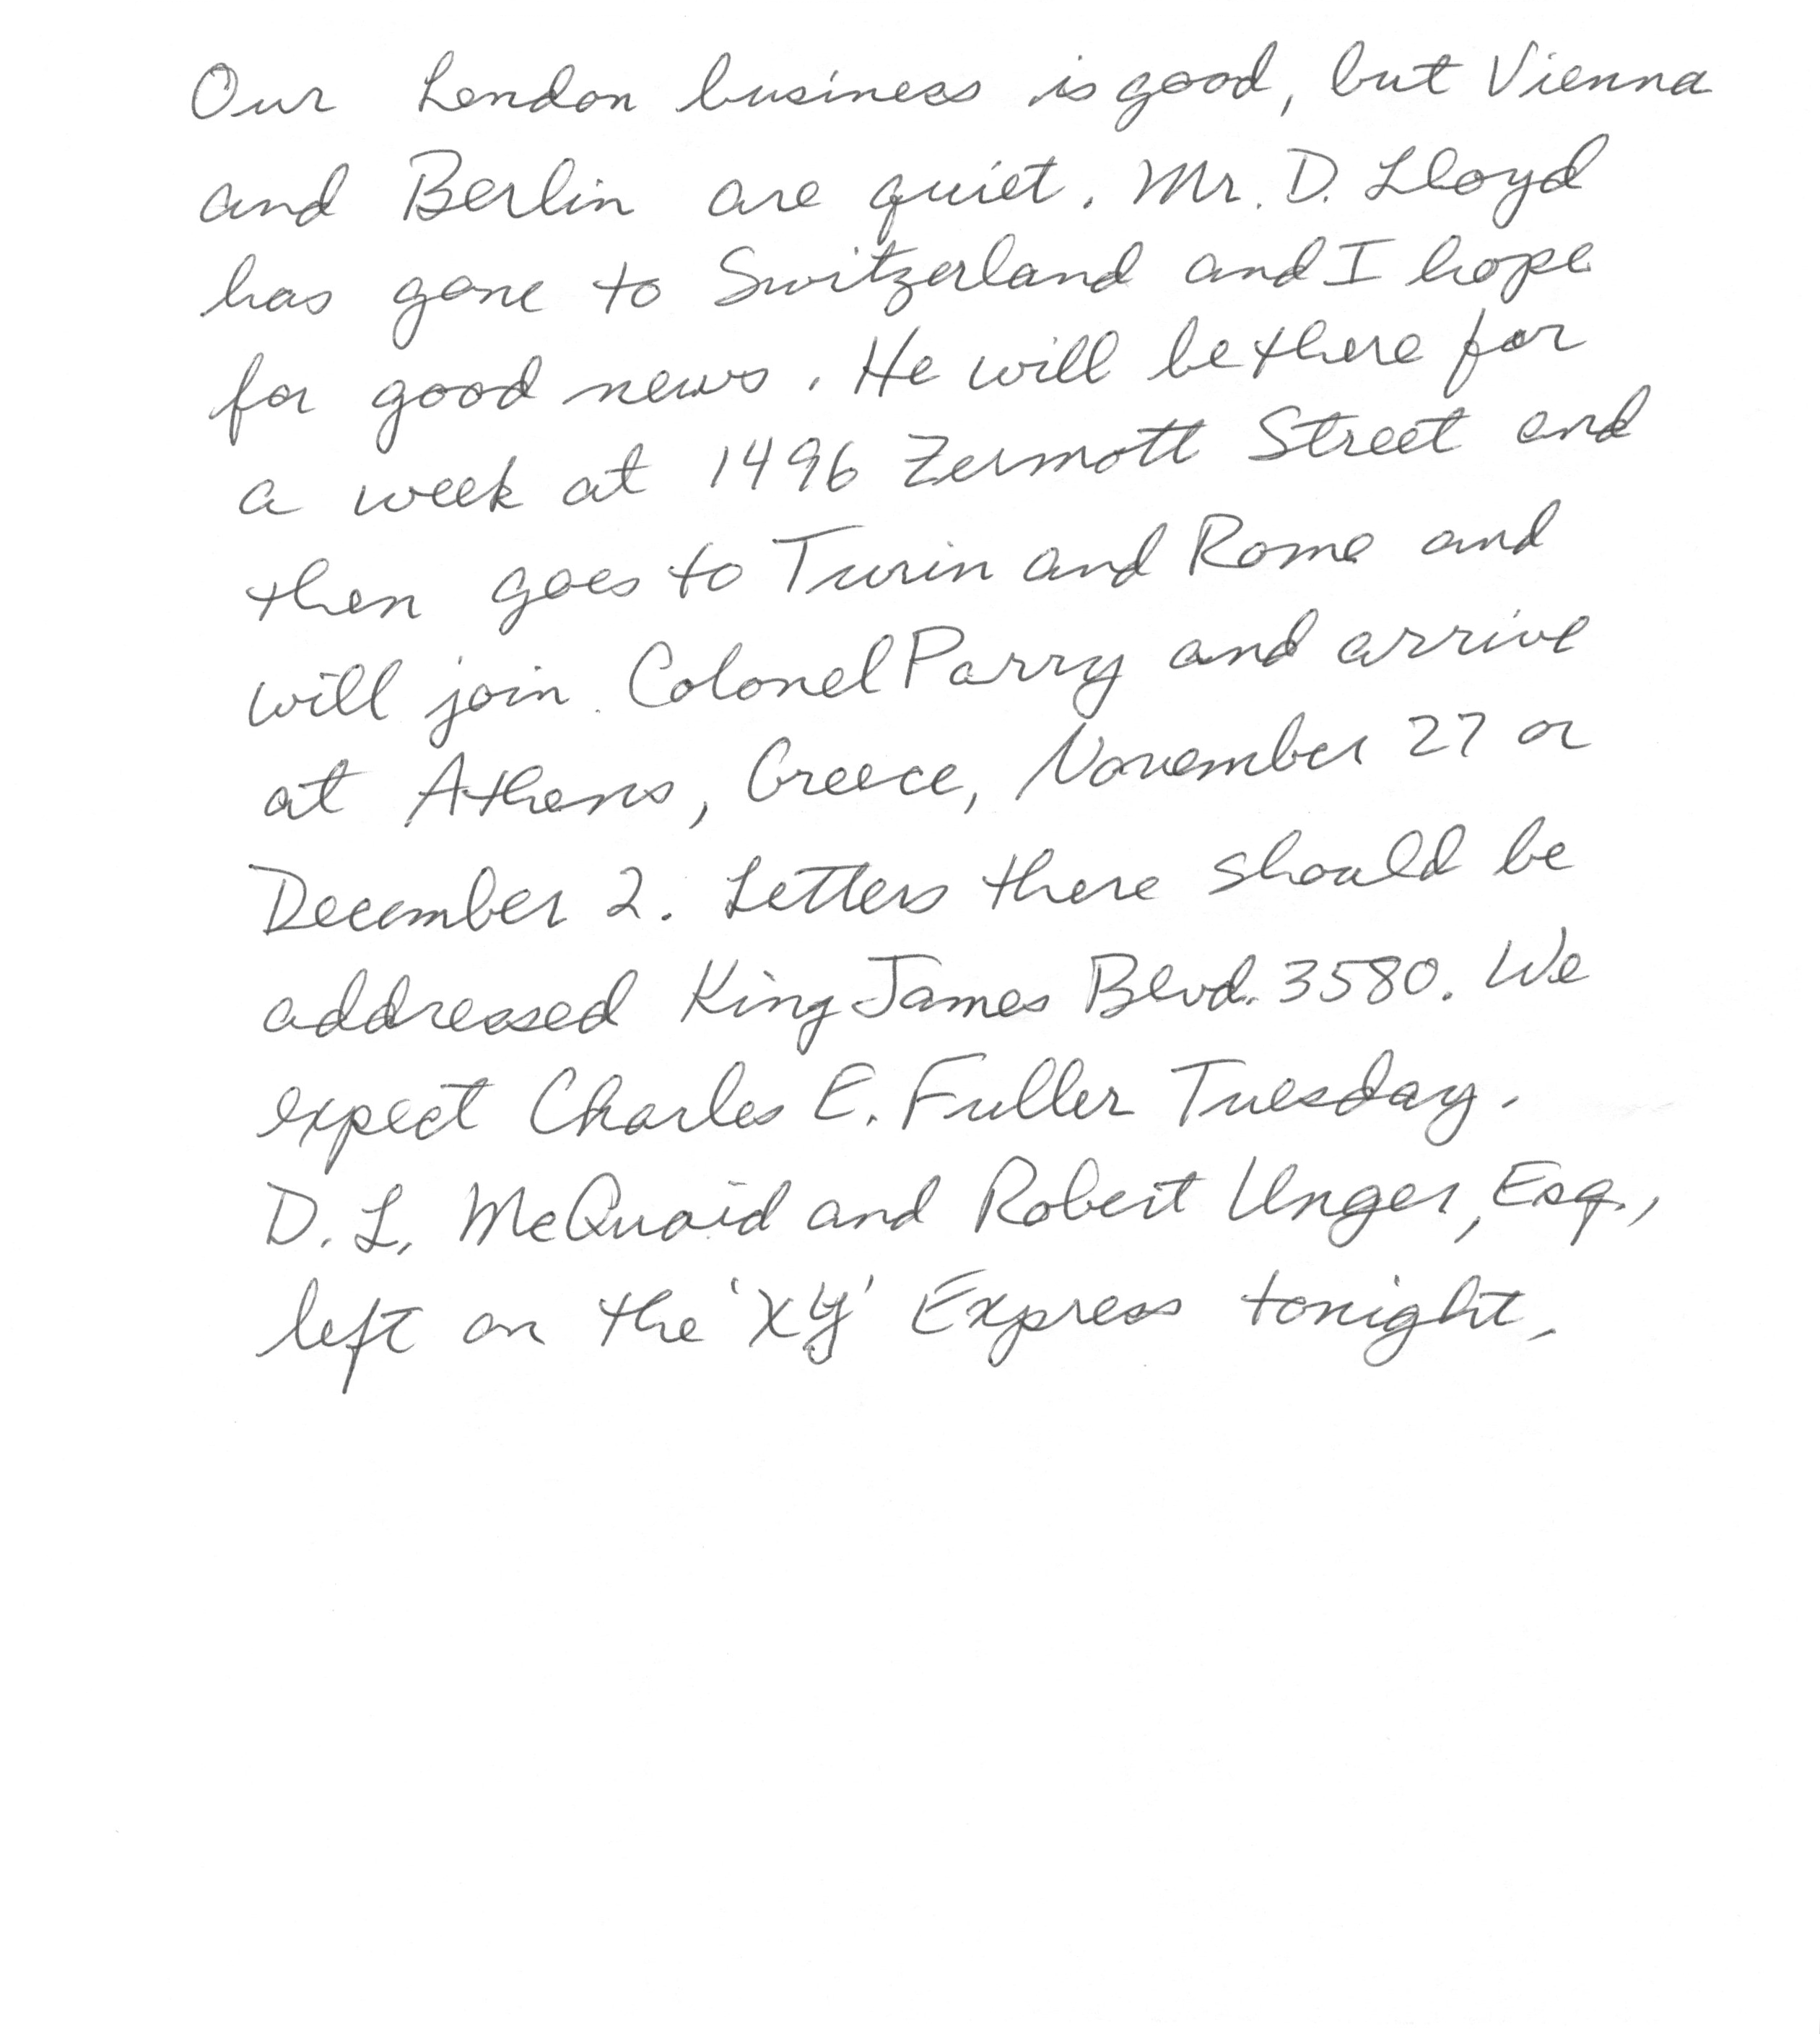 Our London business is good, but Vienna
and Berlin are quiet. Mr. D. Lloyd
has gone to Switzerland and I hope
for good news. He will be there for
a week at 1496 Zermott Street and
then goes to Turin and Rome and
will join Colonel Parry and arrive
at Athens, Greece, November 27 or
December 2. Letters there should be
addressed King James Blvd. 3580. We
expect Charles E. Fuller Tuesday.
D. L. McQuaid and Robert Unger, Esq.,
left on the 'XY' Express tonight.